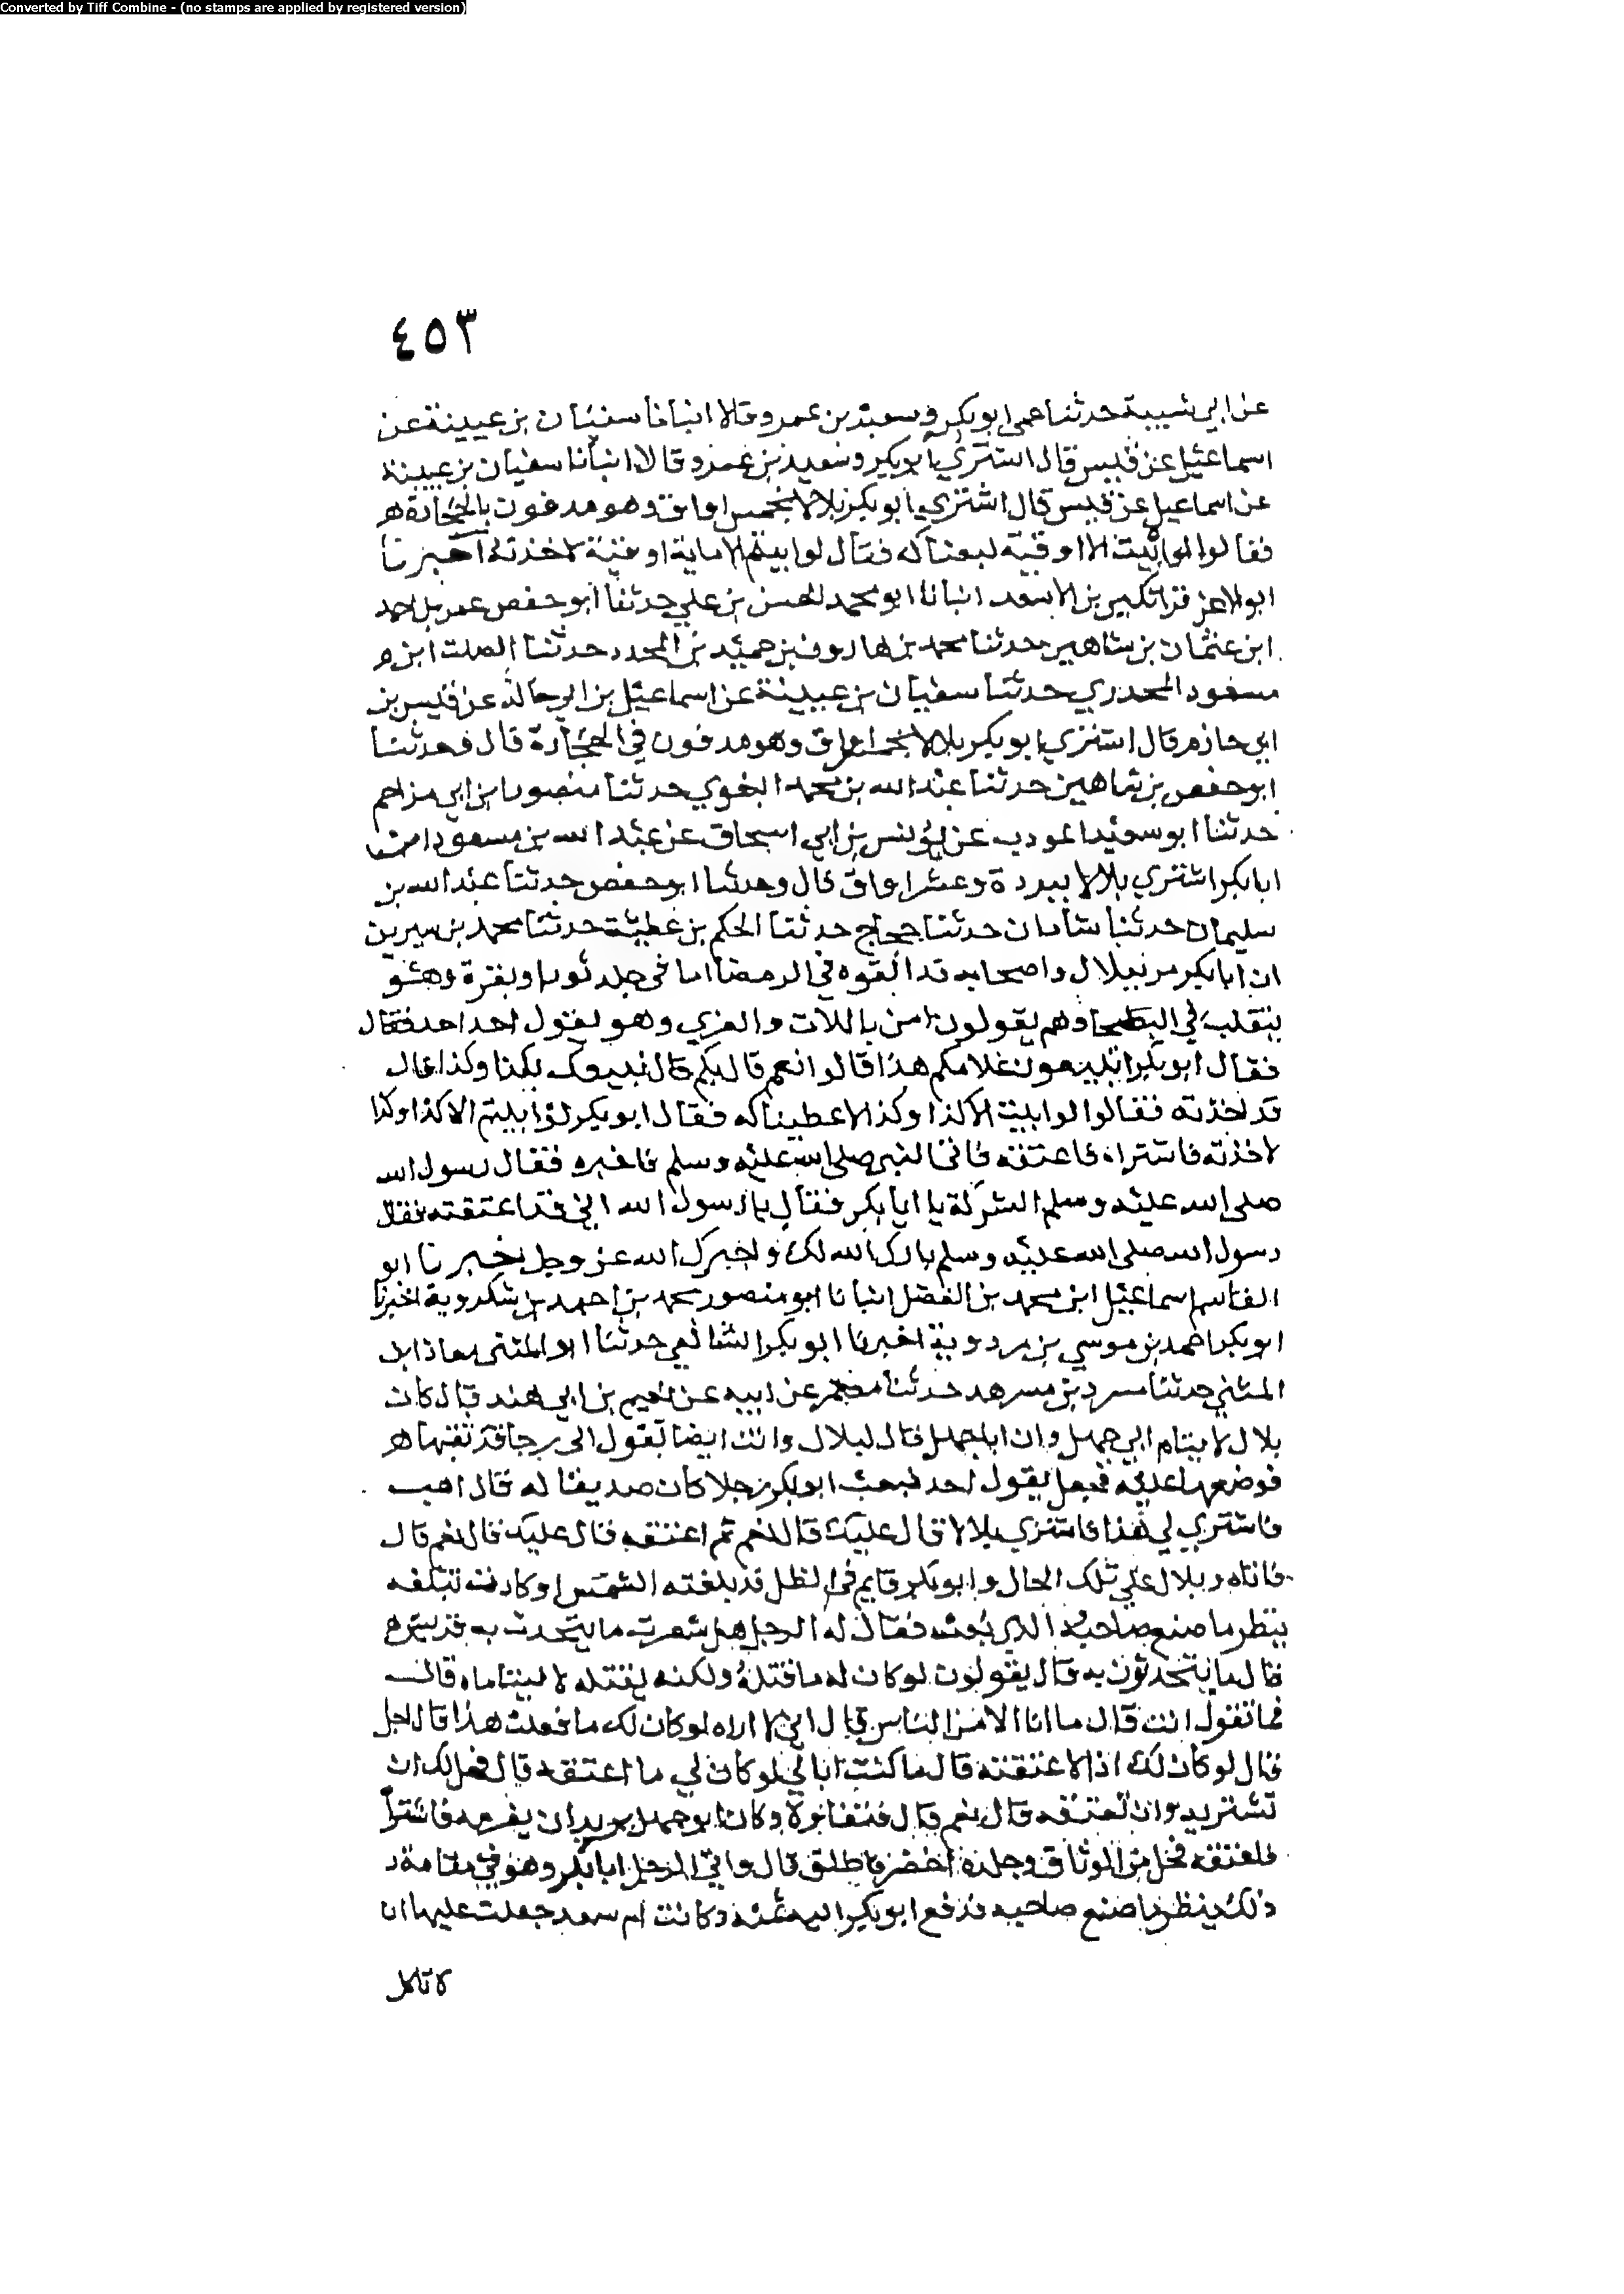 Converted by Tiff Combine - (no stamps are applied by registered version)
٤٥٣
عن ابي شيبة حدثنا عمي ابو بكر وسعيد بن عمرو قالا انبانا سفيان بن عيينة عن
اسماعيل عن قيس قال اشتري ابو بكر وسعيد بن عمرو قالا انبأنا سفيان بن عيينة
عن اسماعيل عن قيس قال اشتري ابو بكر بلالا بخمس اواق وهو مدفون بالحجارة
فقالوا لو ابيت الا اوقية لبعناكه فقال لو ابيتم الا ماية اوقية لاخذته اخبرنا
ابو الاعز قراتكين بن الاسعد انبانا ابو محمد الحسن بن علي حدثنا ابو حفص عمر بن احمد
ابن عثمان بن شاهين حدثنا محمد بن هارون بن حميد بن المجدر حدثنا الصلت ابن
مسعود الجحدري حدثنا سفيان بن عيينة عن اسماعيل بن ابي خالد عن قيس بن
ابي حازم قال اشتري ابو بكر بلالا بخمس اواق وهو مدفون في الحجارة قال وحدثنا
ابو حفص بن شاهين حدثنا عبد الله بن محمد البغوي حدثنا منصور ابن ابي مزاحم
حدثنا ابو سعيد المودب عن يونس بن ابي اسحاق عن عبد الله بن مسعود ان
ابا بكر اشتري بلالا ببردة وعشر اواق قال وحدثنا ابو حفص حدثنا عبد الله بن
سليمان حدثنا شاذان حدثنا حجاج حدثنا الحكم بن عطية حدثنا محمد بن سيرين
ان ابا بكر مر ببلال واصحابه قد القوه في الرمضا اما في جلد ثور او بقرة وهو
ينقلب في البطحا وهم يقولون امن باللات والعزي وهو يقول احد احد فقال
فقال ابو بكر اتبيعون غلامكم هذا قالوا نعم قال بكم قال نبيعك بكذا وكذا قال
قد اخذته فقالوا لو ابيت الا كذا وكذا لاعطيناكه فقال ابو بكر لو ابيتم الا كذا وكذا
لاخذته فاشتراه فاعتقه فاتي النبي صلى الله عليه وسلم فاخبره فقال رسول الله
صلى الله عليه وسلم الشركة يا ابا بكر فقال يا رسول الله اني قد اعتقته فقال
رسول الله صلى الله عليه وسلم بارك الله لك الله عز وجل اخبرنا ابو
القاسم اسماعيل ابن محمد بن الفضل انبانا ابو منصور محمد بن احمد بن شكروية اخبرنا
ابو بكر احمد بن موسي بن مردوية اخبرنا ابو بكر الشافعي حدثنا ابو المثنى معاذ ابن
المثني حدثنا مسدد بن مسرهد حدثنا معتمر عن ابيه عن نعيم بن ابي هند قال كان
بلال لايتام ابي جهل وان ابا جهل قال لبلال وانت ايضا تقول
فوضعها عليه فجعل يقول احد فبعث ابو بكر رجلا كان صديقا له قال اذهب
فاشتري لي هذا فاشتري بلالا قال عليك قال نعم ثم اعتقه قال عليك قال نعم قال
فاتاه وبلال علي تلك الحال وابو بكر قايم في الظل قد بلغته الشمس او كادت تبلغه
ينظر ما صنع صاحبه الذي بعث فقال له الرجل هل شعرت ما يتحدث به
قال ما يتحدثون به قال يقولون لو كان له ما قتله ولكنه يقتله لا ليتاماه قال
فما تقول انت قال ما انا الا من الناس قال اني لا اراه لو كان لك ما فعلت هذا قال اجل
قال لو كان لك اذا لاعتقته قال ما كنت ابالي لو كان لي ما اعتقه قال فهل لك ان
تشتريه وان تعتقه قال نعم قال وكان ابو جهل يريد ان فاشترا
فاعتقه فحل من الوثاق وجلده اخضر فاطلق قال واتي الرجل ابا بكر وهو في مقامه
ذلك ينظر ما صنع صاحبه فدفع ابو بكر اليه ثمنه وكانت ام سعد جعلت عليها ان
لا تاكل